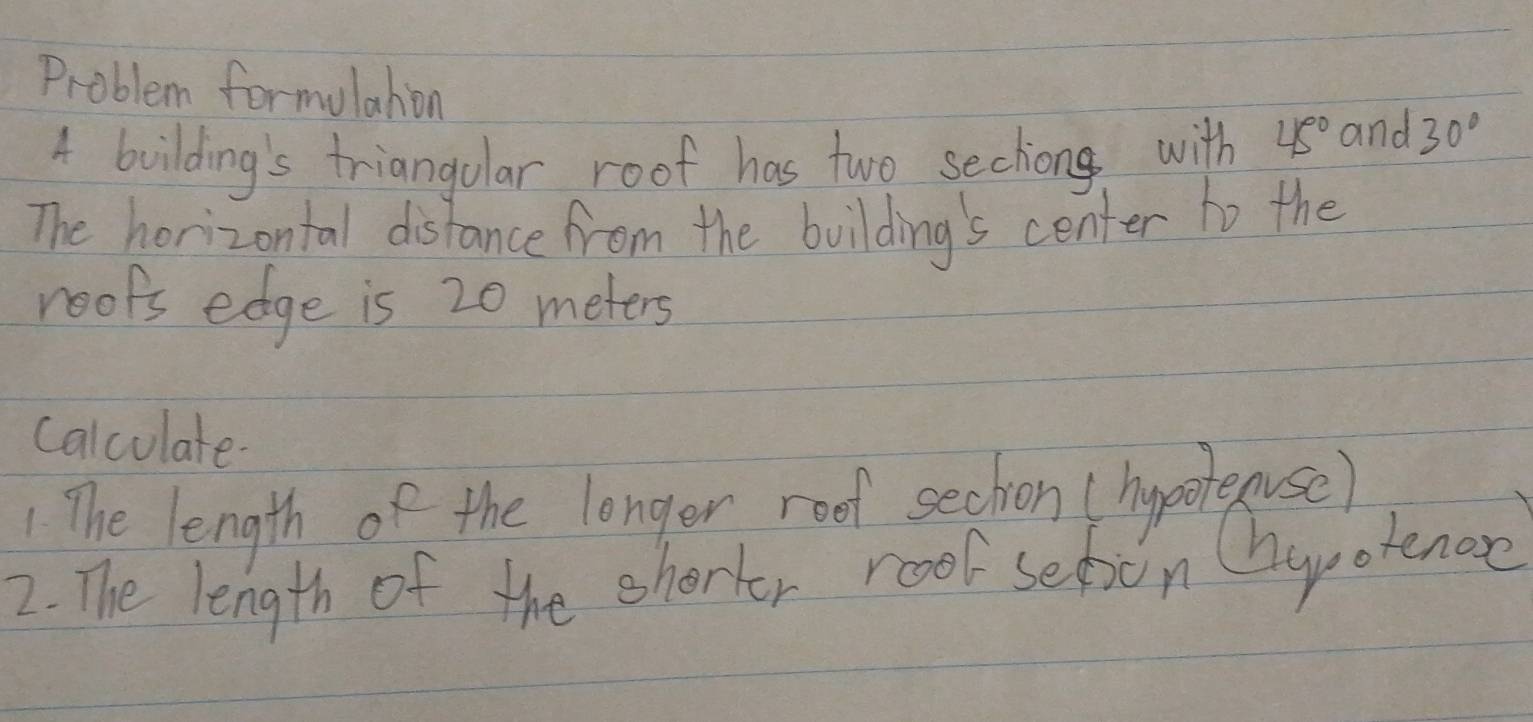 Problem formulation
A building's triangular roof has two sections with 45° and 30°
The horizontal distance from the building's center to the
roofs edge is 20 meters
Calculate.
1. The length of the longer roof section (hypotenuse)
2. The length of the shorter roof section (hypotenose)